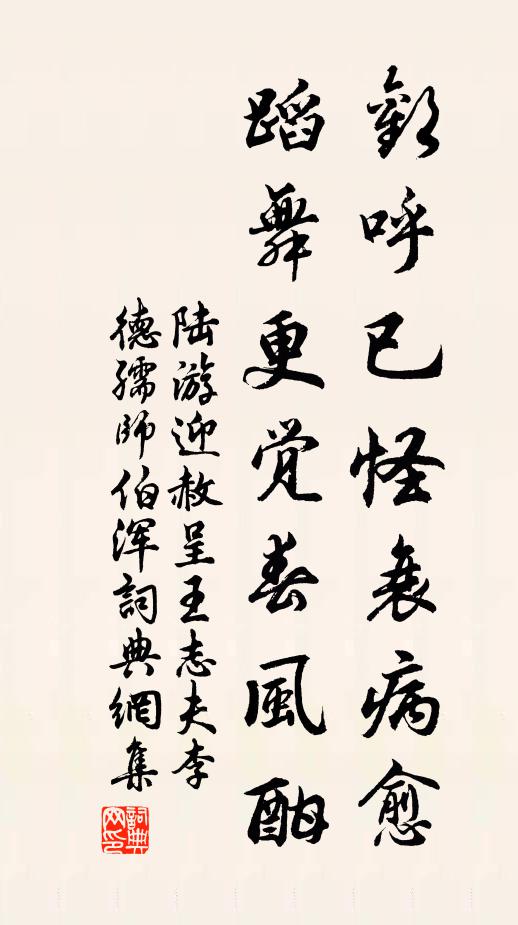 歡呼已怪衰病愈
蹈舞更觉春風酣
陆游迎赦呈王志夫李
德孺師伯浑詞典網集
詞典